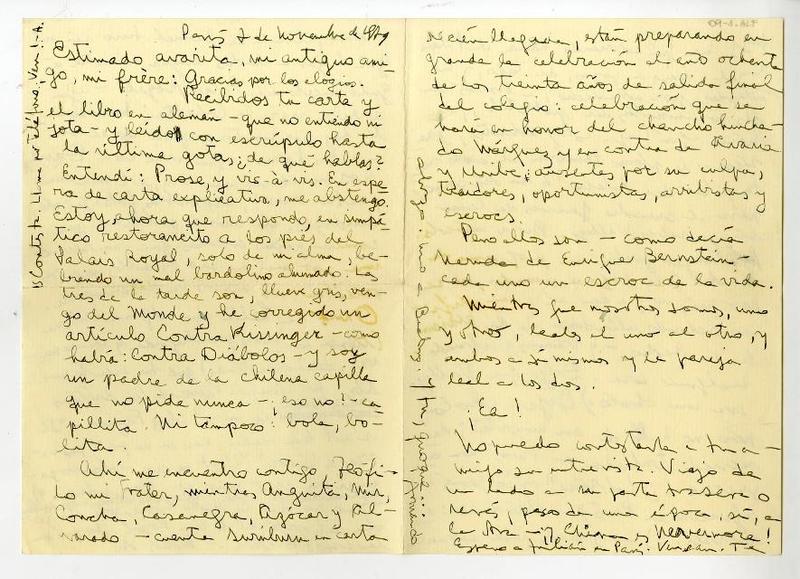 París 2 de noviembre de 1979
Estimado avarita, mi antiguo ami-
go, mi frère: Gracias por los elogios.
Recibidos tu carta y
el libro en alemán - que no entiendo ni
jota - y leídos con escrúpulo hasta
la última gota, ¿de qué hablas?
Entendí: Prose, y vis-à-vis. En espe-
ra de carta explicativa, me abstengo.
Estoy, ahora que respondo, en simpá-
tico restorancito a los piés del
Palais Royal, solo de mi alma, be-
biendo un mal bardolino ahumado. Las
tres de la tarde son, llueve gris, ven-
go del Monde y he corregido un
artículo Contra Kissinger - como
había: Contra Diábolos - y soy
un padre de la chilena capilla
que no pide nunca - ¡eso no! - ca-
pillita. Ni tampoco: bola, bo-
lita.
Ahí me encuentro contigo, Teófi-
lo mi frater, mientras Anguita,
Concha, Casanegra, Azócar y Al-
varado - cuenta en carta
recién llegada, están preparando en
grande la celebración el año ochenta
de los treinta años de salida final
del colegio: celebración que se
hará en honor del chancho hincha-
do Márquez y en contra de Rivano
y Uribe, ausentes por su culpa,
traidores, oportunistas, arribistas y
escrocs.
Pero ellos son - como decía
Neruda de Enrique Bernstein -
cada uno un escroc de la vida.
Mientras que nosotros somos, uno
y otro, leales el uno al otro, y
ambos a sí mismos y la pareja
leal a los dos.
¡Ea!
No puedo contestarle a tu a-
migo su entrevista. Viajo de
un lado a su parte trasera o
revés, paso de una época, sí, a
la otra - ¡y China es Nevermore!
Espero a Julián en París. Te
abrazo. uno a
Y tú, qué
Armando
Contesta. Llama por teléfono.
09-A.ALT